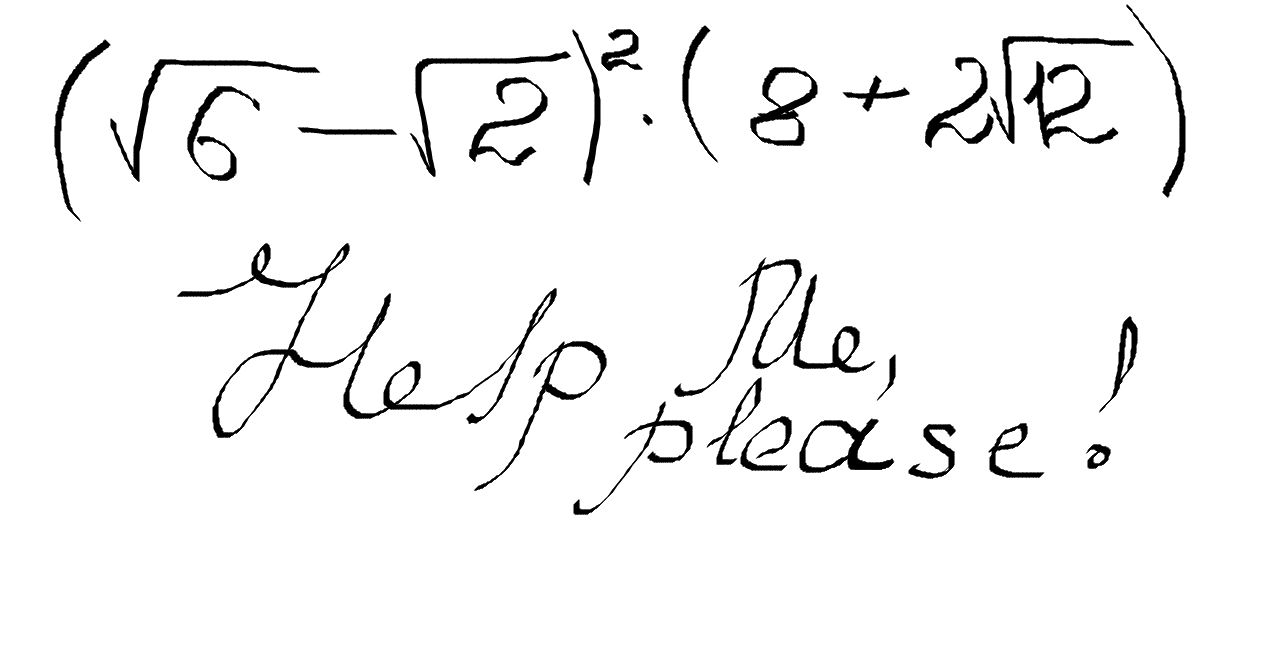 (√6 − √2)² · (8 + 2√12)
Help Me,
please!